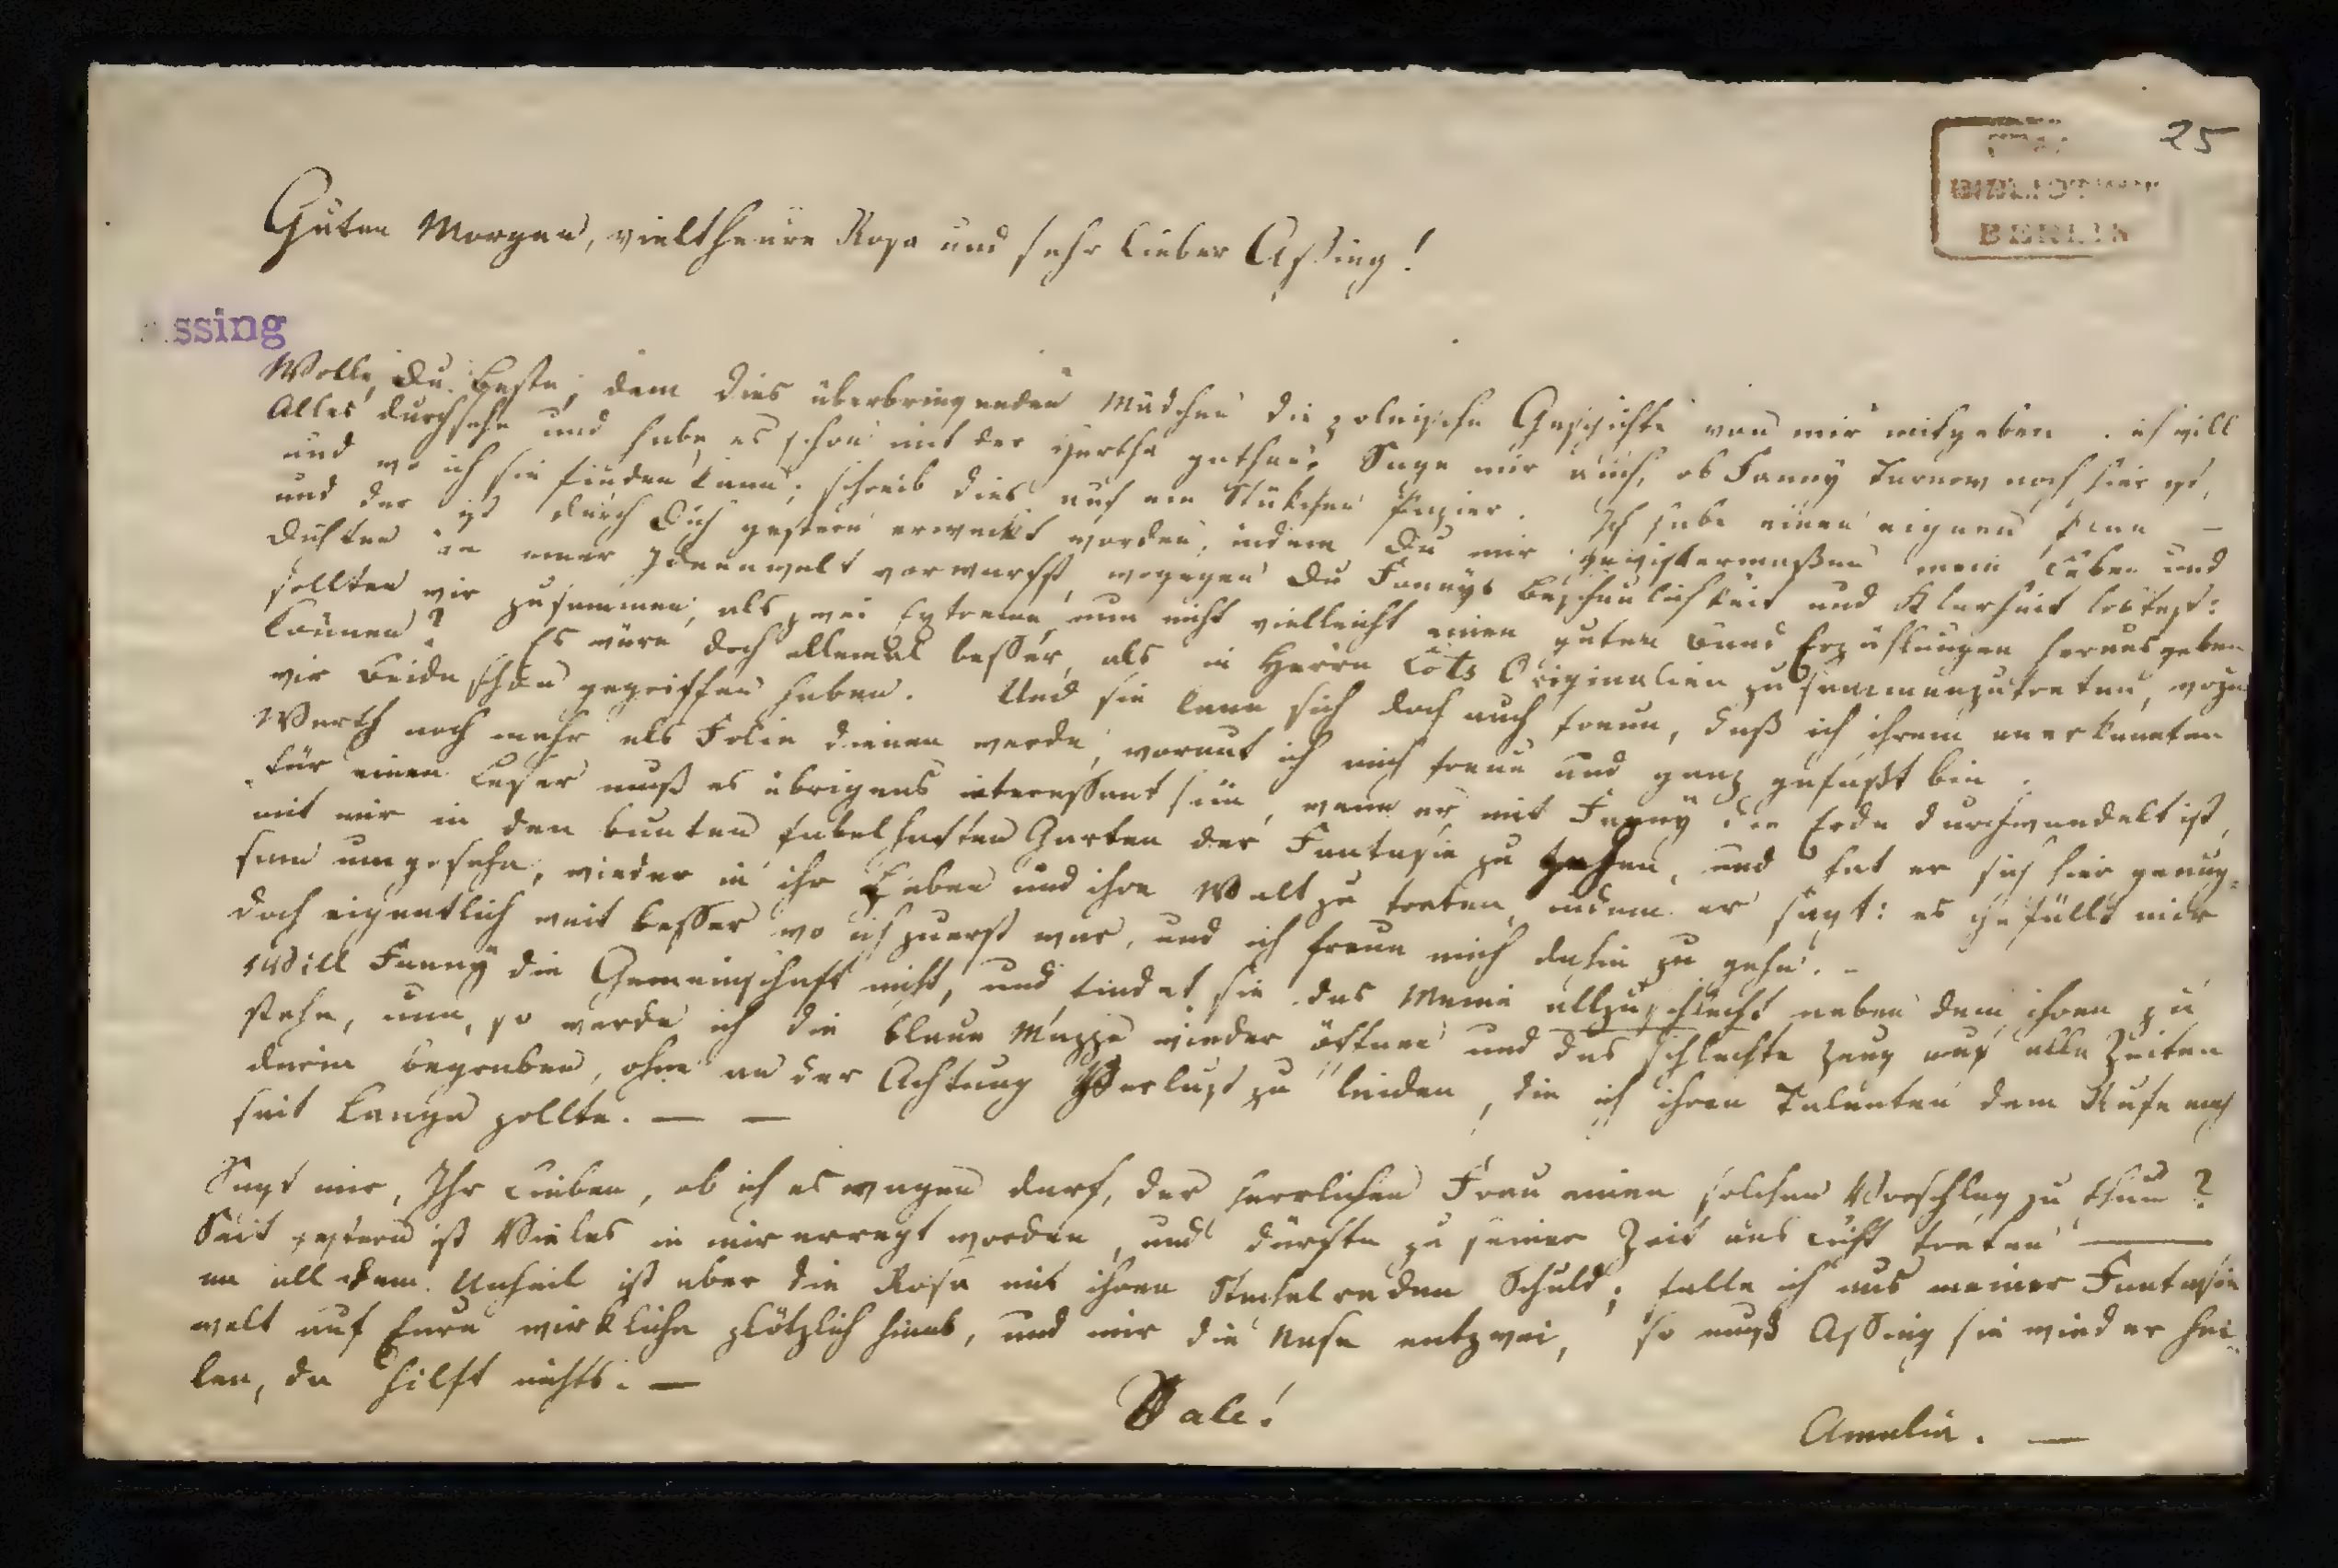 25
BIBLIOTHEK
BERLIN
Guten Morgen, vieltheure Rosa und sehr lieber Assing!
ssing
Wolle, Du Beste, dem dies überbringenden Mädchen die polnische Geschichte von mir mitgeben. ich will
Alles durchsehn und habe es schon mit der Hertha gethan. Sage mir auch, ob Fanny Tarnow noch hier ist,
und wo ich sie finden kann; schreib dies auf ein Stükchen Papier. Ich habe einen eignen Plan —
und der ist durch Dich gestern erweckt worden, indem Du mir gewissermaßen mein Leben und
Dichten in einer Ideenwelt vorwarfst, wogegen Du Fannys Beschaulichkeit und Klarheit lobtest:
sollten wir zusammen, als zwei Extreme, nun nicht vielleicht einen guten Band Erzählungen herausgeben
können? Es wäre doch allemal besser, als in Herrn Lots Originalien zusammenzutreten, wozu
wir beide schon gegriffen haben. Und sie kann sich doch auch freun, daß ich ihrem anerkannten
Werth noch mehr als Folie dienen werde, worauf ich mich freue und ganz gefaßt bin.
für einen Leser muß es übrigens interessant sein, wenn er mit Fanny die Erde durchwandelt ist,
mit mir in den bunten fabelhaften Garten der Fantasie zu gehen, und hat er sich hier genug-
sam umgesehn, wieder in ihr Leben und ihre Welt zu treten, indem er sagt: es gefällt mir
doch eigentlich weit besser wo ich zuerst war, und ich freue mich dahin zu gehn. –
Will Fanny die Gemeinschaft nicht, und findet sie das Meine allzuschlecht neben dem ihren zu
stehn, nun, so werde ich die blaue Mappe wieder öffnen und das schlechte Zeug auf alle Zeiten
darin begraben, ohne an der Achtung Verlust zu leiden, die ich ihren Talenten dem Rufe nach
seit lange zollte. — —
Sagt mir, Ihr Lieben, ob ich es wagen darf, der herrlichen Frau einen solchen Vorschlag zu thun?
Seit gestern ist Vieles in mir erregt worden, und dürfte zu seiner Zeit ans Licht treten —
an all dem Unheil ist aber die Rosa mit ihren Stachelreden Schuld; falle ich aus meiner Fantasie
welt auf Eure wirkliche plötzlich hinab, und mir die Nase entzwei, so muß Assing sie wieder hei-
len, da hilft nichts. —
Vale!
Amalia. —